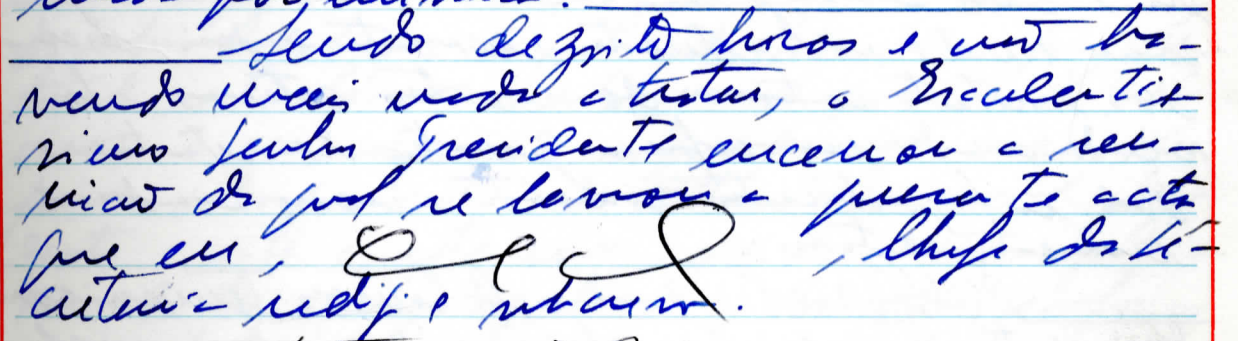 Sendo dezoito horas e não ha-
vendo mais nada a tratar, o Excelentis-
simo Senhor Presidente encerrou a reu-
nião da qual se lavrou a presente acta
que eu, , Chefe da Se-
cretaria redigi e subscrevo.